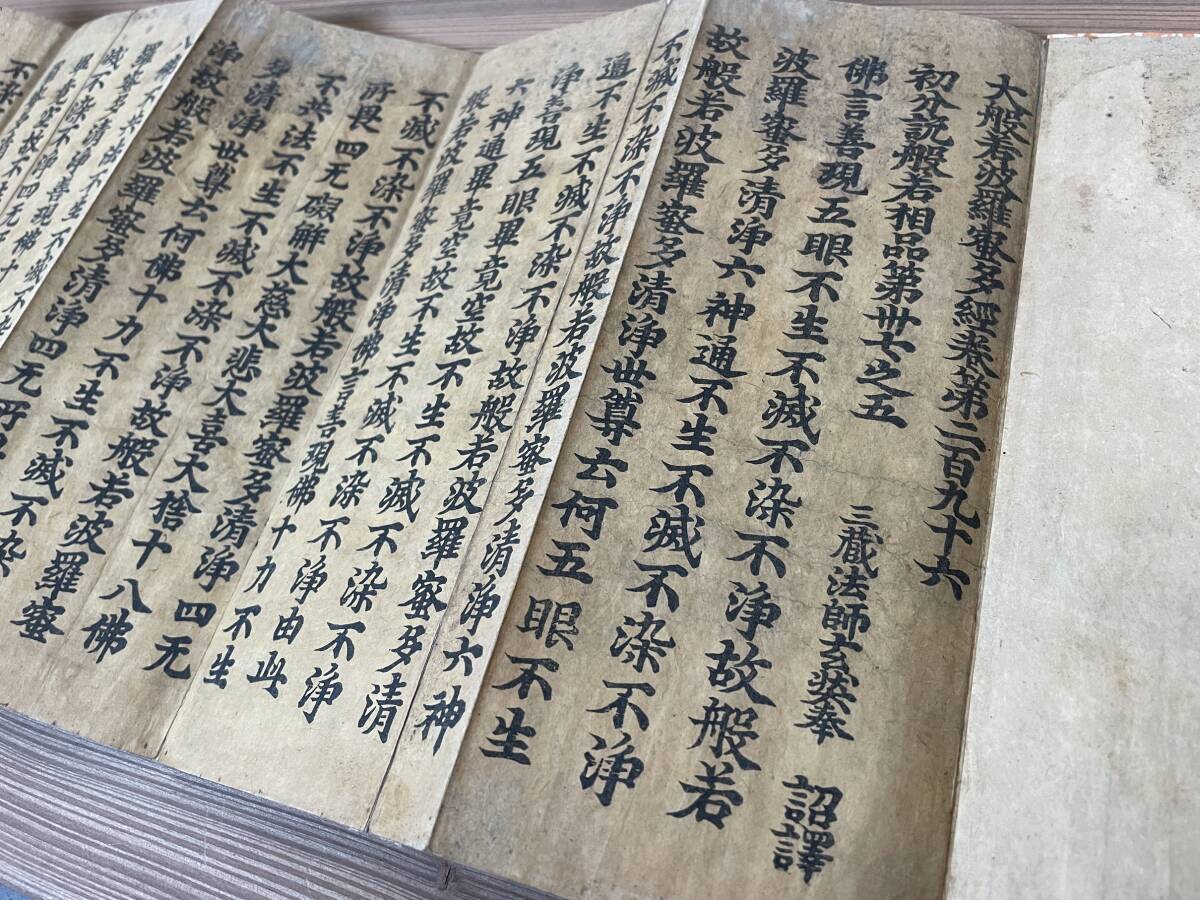 大般若波羅蜜多經卷第二百九十六
初分説般若相品第卅七之五
三藏法師玄奘奉 詔譯
佛言善現五眼不生不滅不染不淨故般若
波羅蜜多清淨六神通不生不滅不染不淨
故般若波羅蜜多清淨世尊云何五眼不生
不滅不染不淨故般若波羅蜜多清淨六神
通不生不滅不染不淨故般若波羅蜜多清
淨善現五眼畢竟空故不生不滅不染不淨
六神通畢竟空故不生不滅不染不淨由此
般若波羅蜜多清淨佛言善現佛十力不生
不滅不染不淨故般若波羅蜜多清淨四无
所畏四无礙解大慈大悲大喜大捨十八佛
不共法不生不滅不染不淨故般若波羅蜜
多清淨世尊云何佛十力不生不滅不染
淨故般若波羅蜜多清淨四无所
佛不共法不生不滅不
羅蜜多清淨善現佛十
滅不染不淨四无
不染